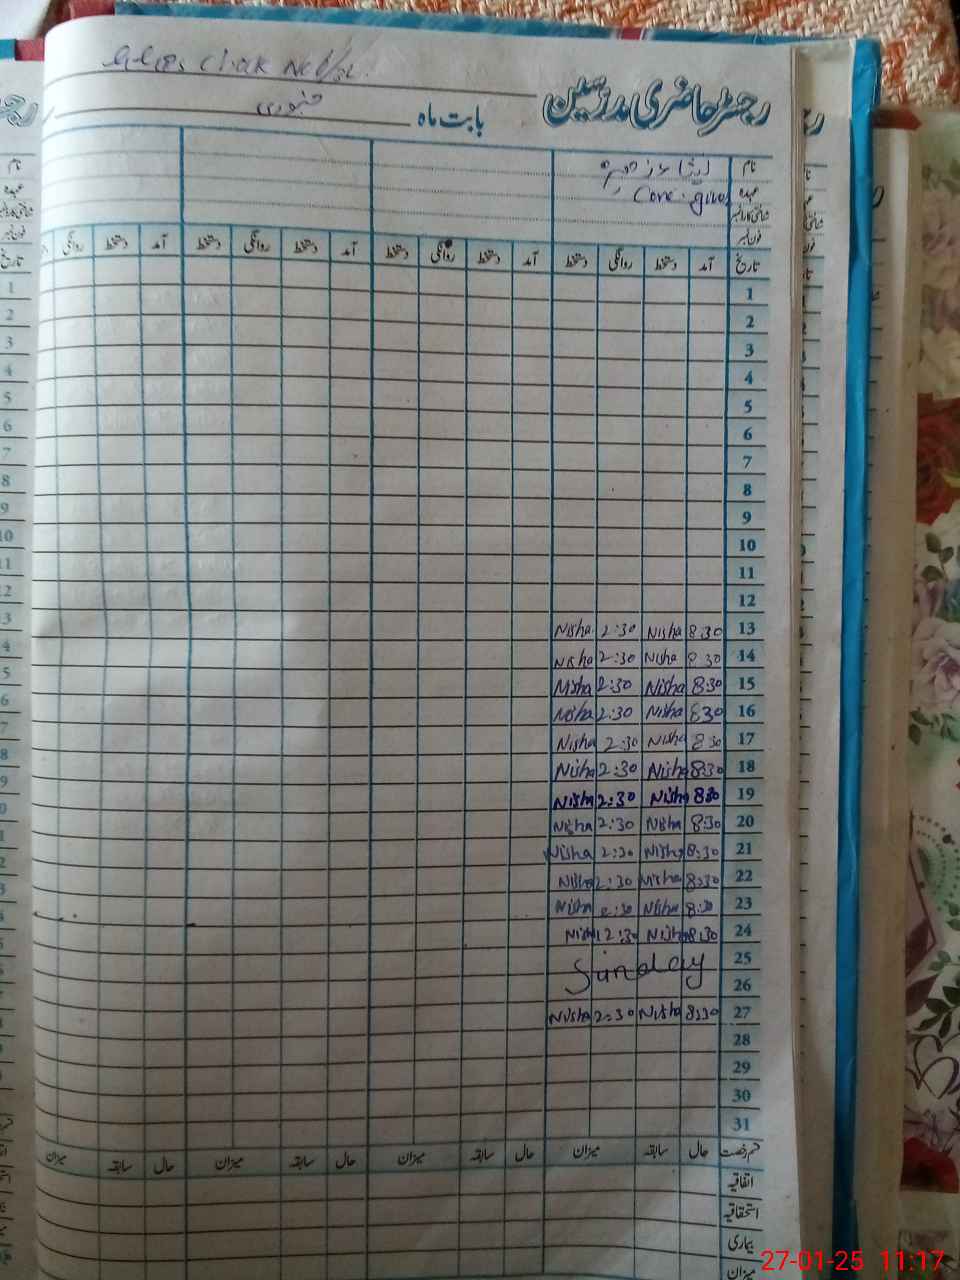 رجسٹر حاضری مدرسین
Chak No
بابت ماہ جنوری
نام
عہدہ Care giver
شناختی کارڈ نمبر
فون نمبر
تاریخ آمد دستخط روانگی دستخط آمد دستخط روانگی دستخط آمد دستخط روانگی دستخط روانگی
1
2
3
4
5
6
7
8
9
10
11
12
13 8:30 Nisha 2:30 Nisha
14 8:30 Nisha 2:30 Nisha
15 8:30 Nisha 2:30 Nisha
16 8:30 Nisha 2:30 Nisha
17 8:30 Nisha 2:30 Nisha
18 8:30 Nisha 2:30 Nisha
19 8:30 Nisha 2:30 Nisha
20 8:30 Nisha 2:30 Nisha
21 8:30 Nisha 2:30 Nisha
22 8:30 Nisha 2:30 Nisha
23 8:30 Nisha 2:30 Nisha
24 8:30 Nisha 2:30 Nisha
25 Sunday
26
27 8:30 Nisha 2:30 Nisha
28
29
30
31
قسم رخصت حال سابقہ میزان حال سابقہ میزان حال سابقہ میزان حال سابقہ میزان
اتفاقیہ
استحقاقیہ
بیماری
میزان
27-01-25 11:17